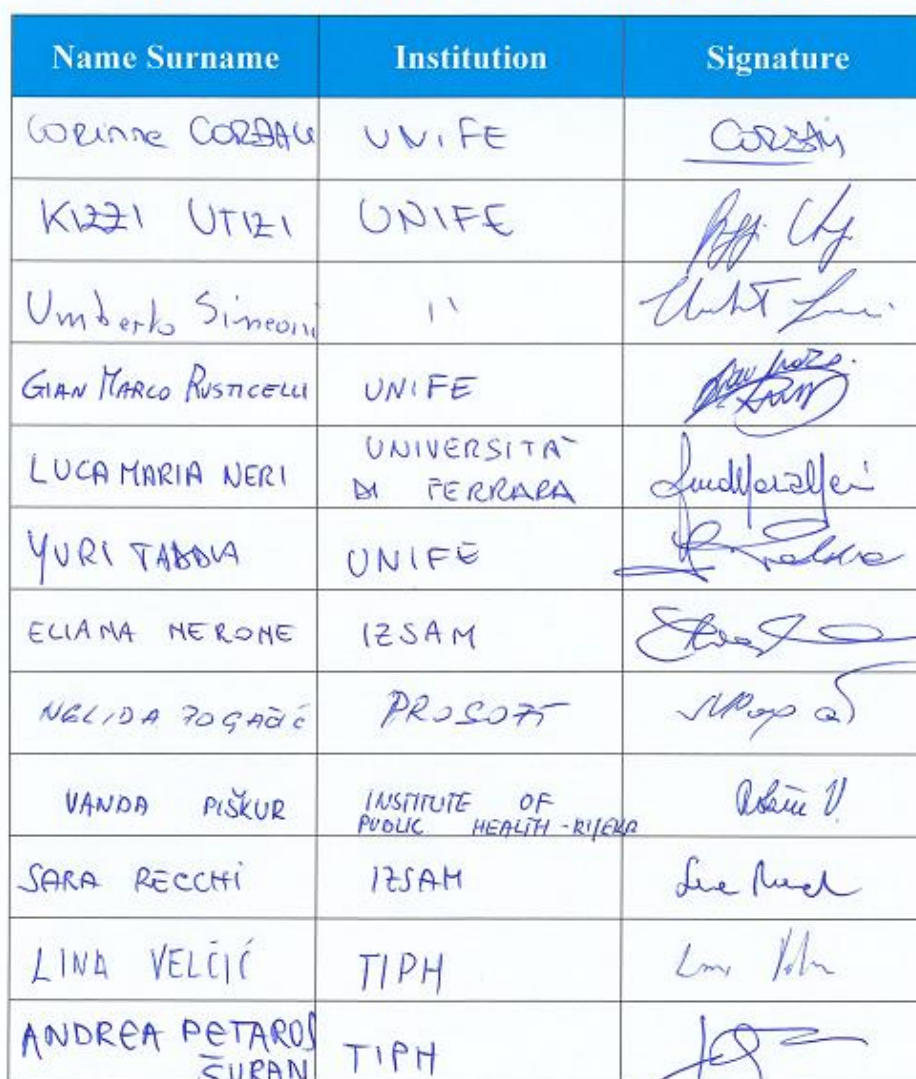 Name Surname Institution Signature
Corinne CORBAU UNIFE CORBAU
KIZZI UTIZI UNIFE
Umberto Simeoni "
GIAN MARCO RUSTICELLI UNIFE
LUCA MARIA NERI UNIVERSITA'
DI FERRARA
YURI TADDIA UNIFE
ELIANA NERONE IZSAM
NELIDA POGAČIĆ PROSOFT
VANDA PIŠKUR INSTITUTE OF
PUBLIC HEALTH - RIJEKA
SARA RECCHI IZSAM
LINA VELČIĆ TIPH
ANDREA PETAROS TIPH
ŠURAN